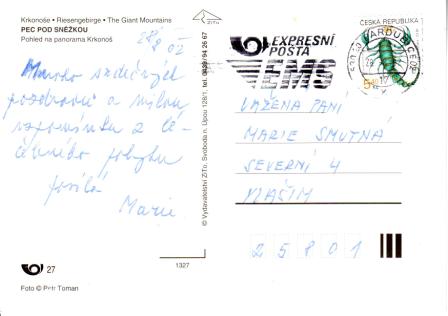 Krkonoše • Riesengebirge • The Giant Mountains
PEC POD SNĚŽKOU
Pohled na panorama Krkonoš
Mnoho srdečných
pozdravů a milou
vzpomínku z lé-
čebného pobytu
posílá
Marie.
27
Foto © Petr Toman
1327
© Vydavatelství ZiTo, Svoboda n. Úpou 128/1, tel. 0439/94 26 67
ZiTo
EXPRESNÍ
POŠTA
EMS
ČESKÁ REPUBLIKA
VÁŽENÁ PANÍ
MARIE SMUTNÁ
SEVERNÍ 4
VLAŠIM
25801